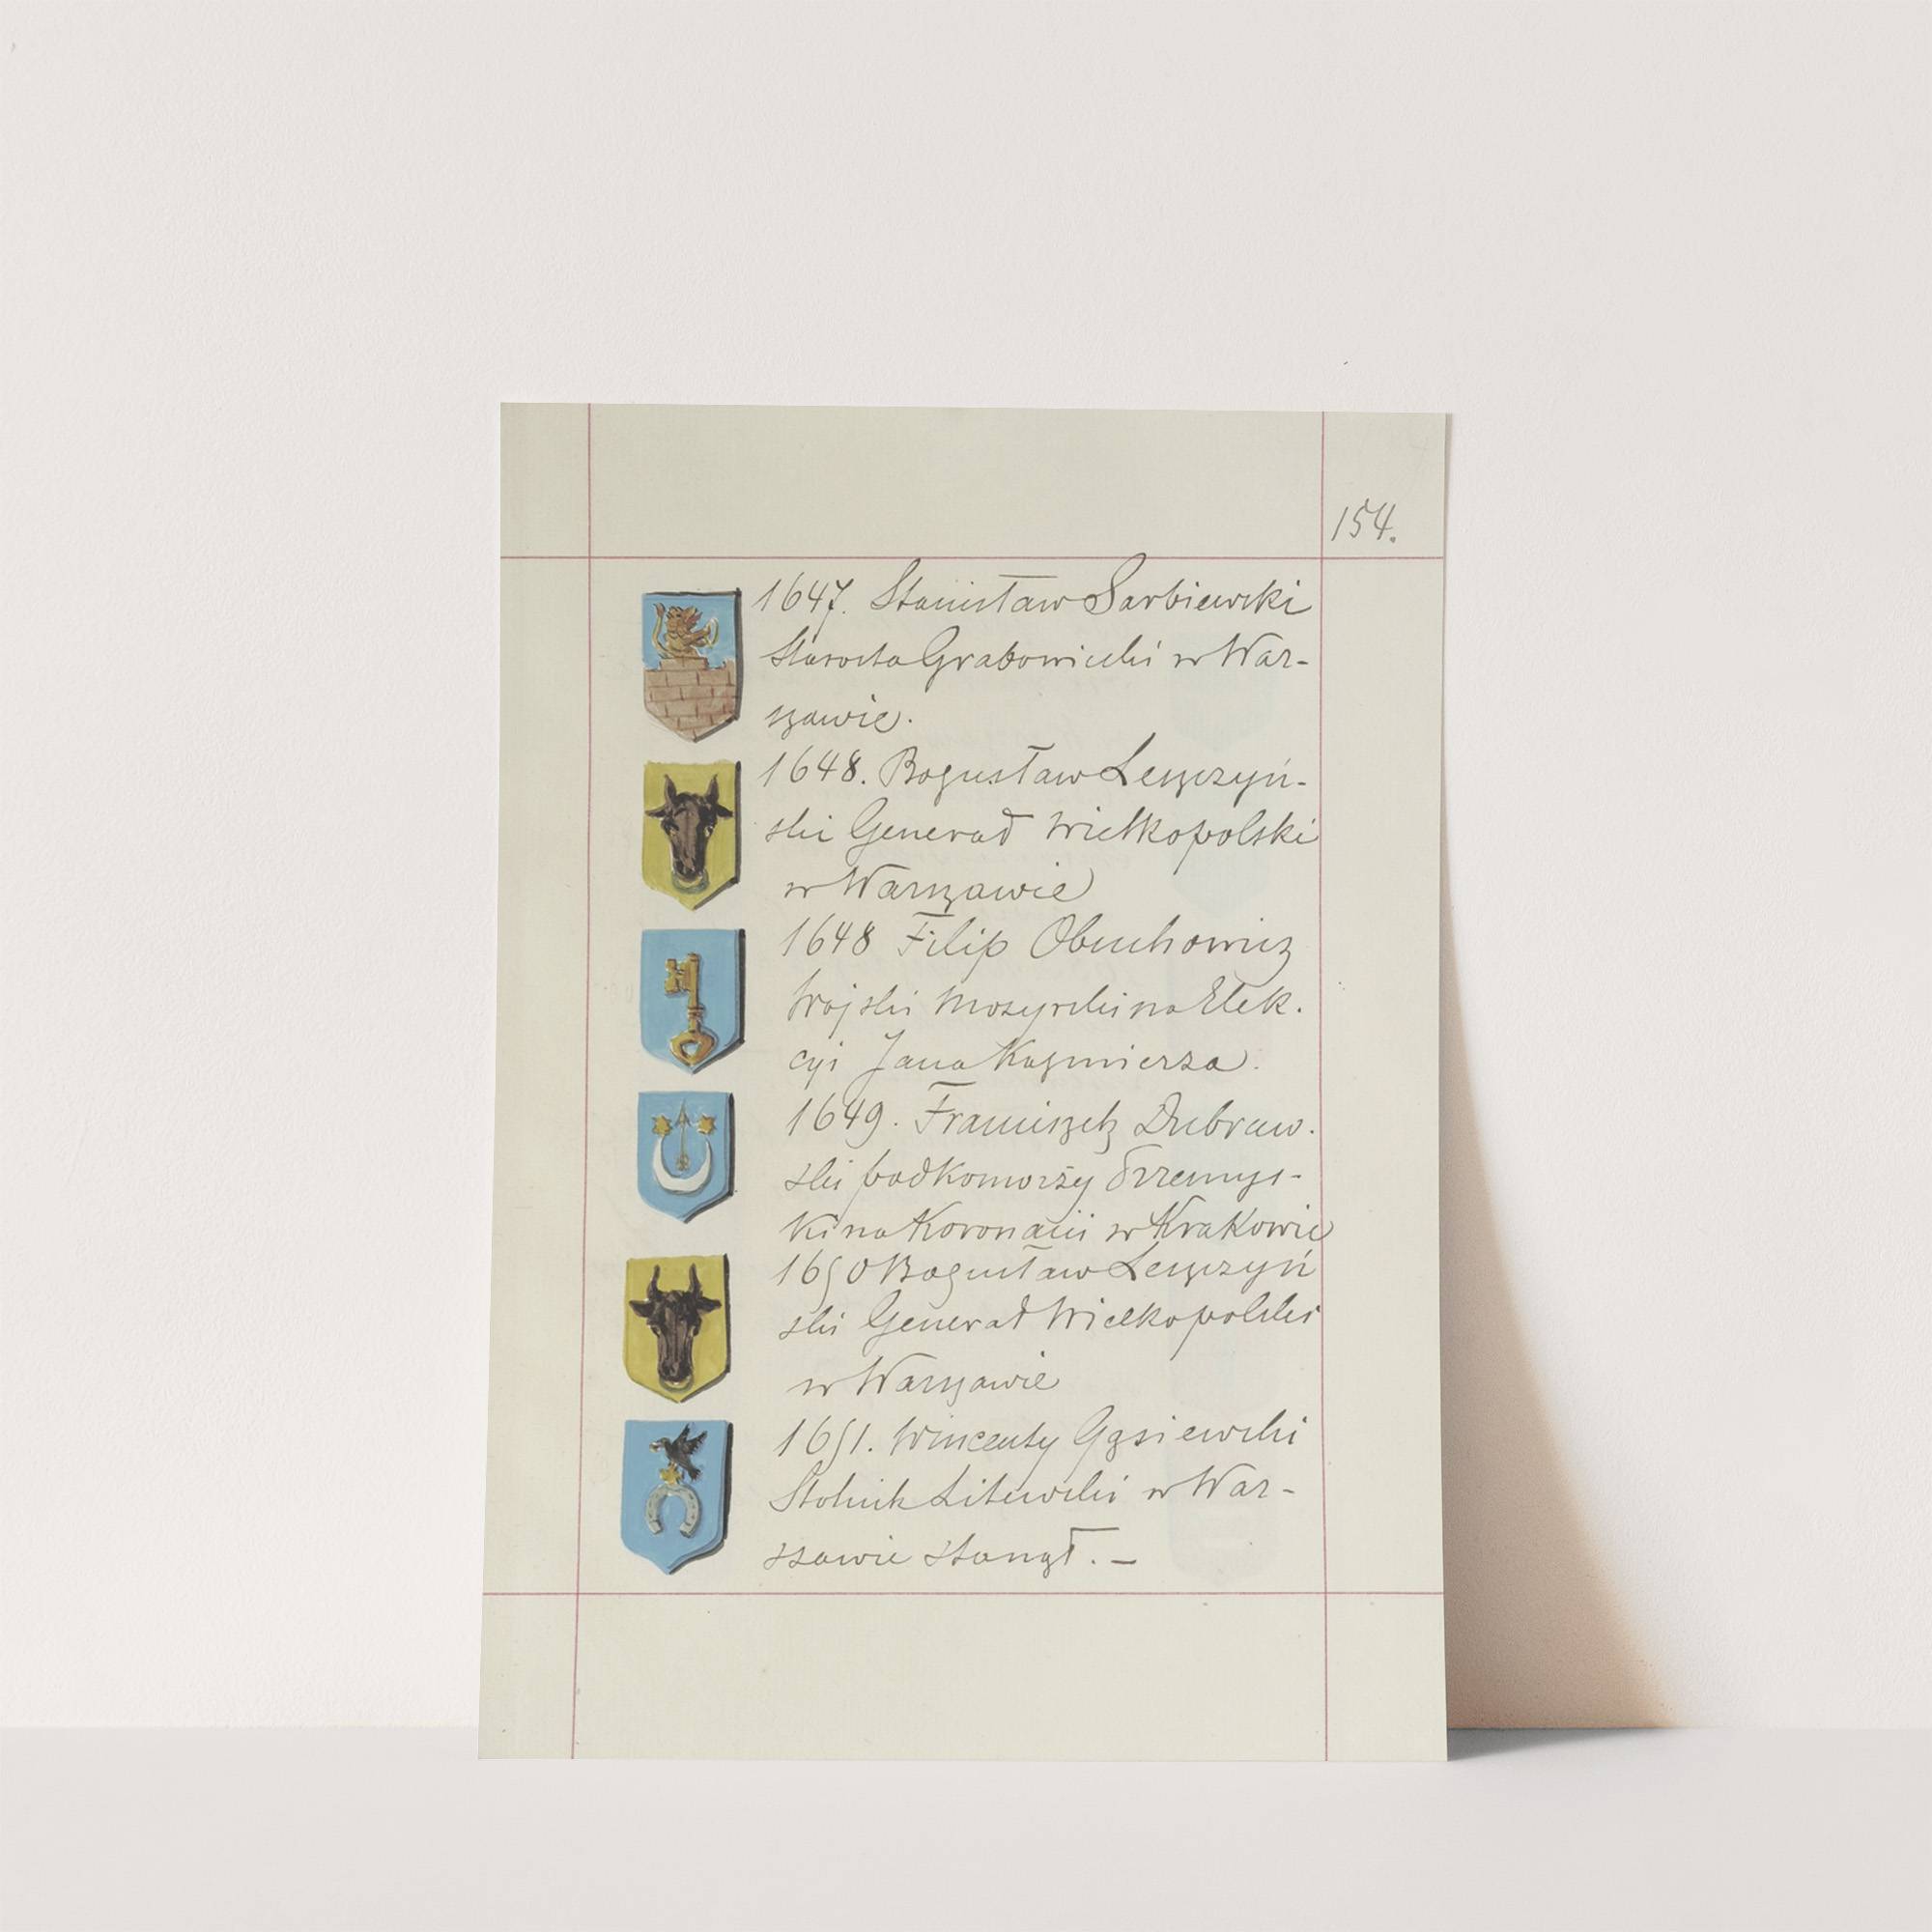 154.
1647. Stanisław Sarbiewski
Starosta Grabowiecki w War-
szawie.
1648. Bogusław Leszczyń-
ski Generał Wielkopolski
w Warszawie
1648 Filip Obuchowicz
Wojski Mozyrski na Elek.
cyi Jana Kazmierza.
1649. Franciszek Dubraw.
ski podkomorzy Przemys-
ki na Koronacii w Krakowie
1650 Bogusław Leszczyń
ski Generał Wielkopolski
w Warszawie
1651. Wincenty Gąsiewski
Stolnik Litewski w War-
szawie stanął. –